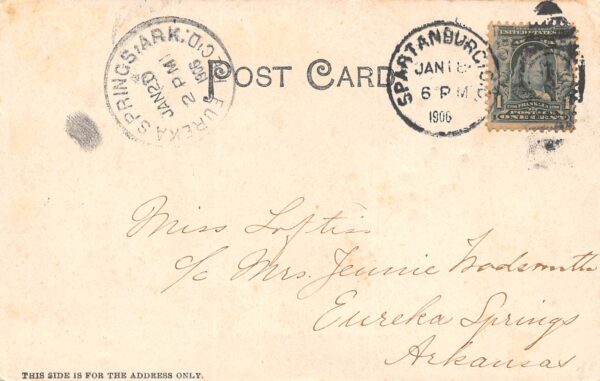 EUREKA SPRINGS, ARK. REC'D.
JAN 20
2 PM
1906
POST CARD
SPARTANBURG, S.C.
JAN 18
6 PM
1906
UNITED STATES
FRANKLIN
POSTAGE
1 ONE CENT 1
Miss Loftiss
c/o Mrs. Jennie
Eureka Springs
Arkansas
THIS SIDE IS FOR THE ADDRESS ONLY.